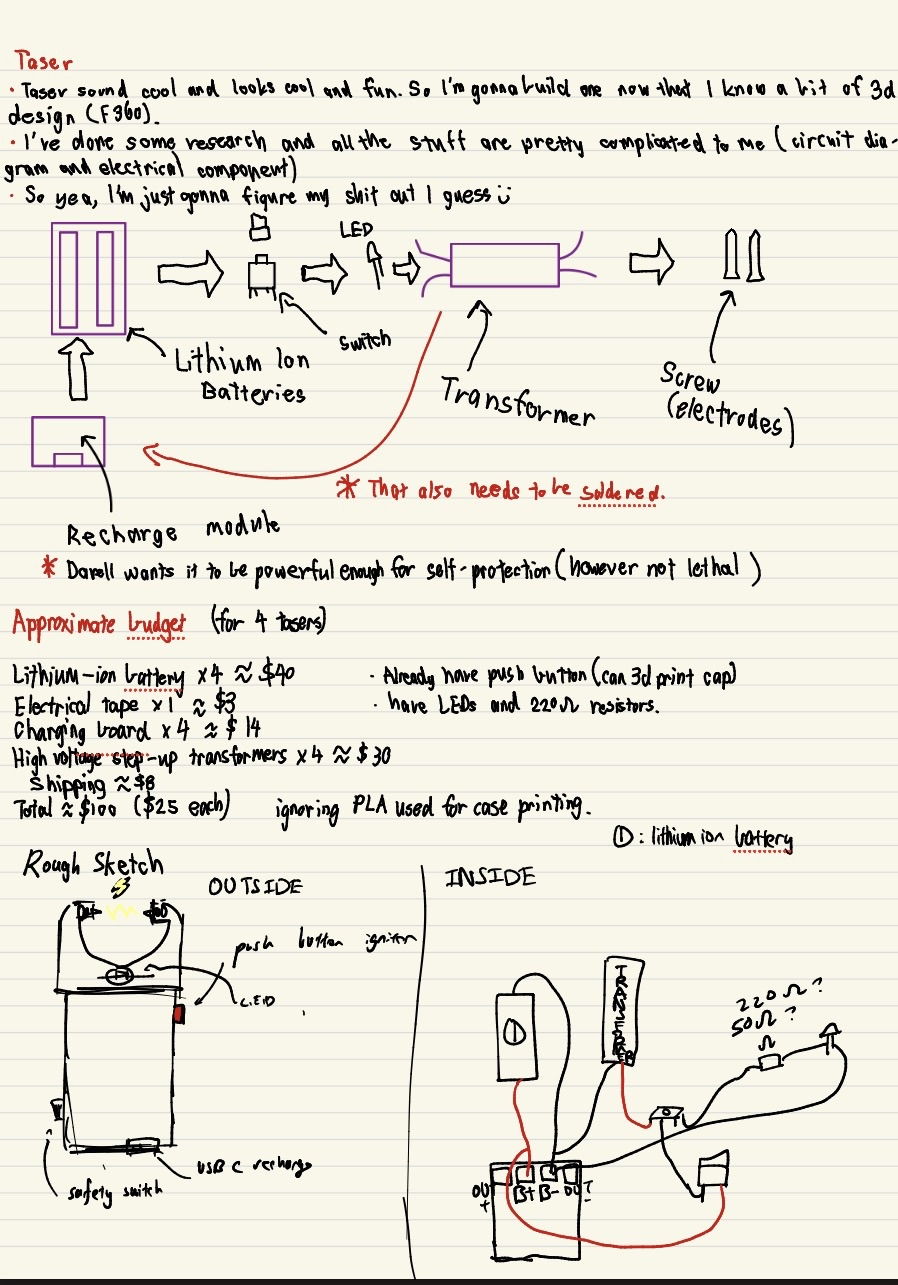 Taser
· Taser sound cool and looks cool and fun. So I'm gonna build one now that I know a bit of 3d
design (F360).
· I've done some research and all the stuff are pretty complicated to me (circuit dia-
gram and electrical component)
· So yea, I'm just gonna figure my shit out I guess
LED
Switch
Lithium Ion
Batteries
Transformer
Screw
(electrodes)
* That also needs to be soldered.
Recharge module
* Darell wants it to be powerful enough for self-protection (however not lethal)
Approximate budget (for 4 tasers)
Lithium-ion battery x4 ≈ $40
· Already have push button (can 3d print cap)
Electrical tape x1 ≈ $3
· have LEDs and 220Ω resistors.
Charging board x4 ≈ $14
High voltage step-up transformers x4 ≈ $30
Shipping ≈ $8
Total ≈ $100 ($25 each) ignoring PLA used for case printing.
①: lithium ion battery
Rough Sketch
OUTSIDE
INSIDE
push button igniter
LED
USB C recharge
safety switch
①
TRANSFORMER
220Ω?
50Ω?
Ω
OUT +
B+
B-
OUT -